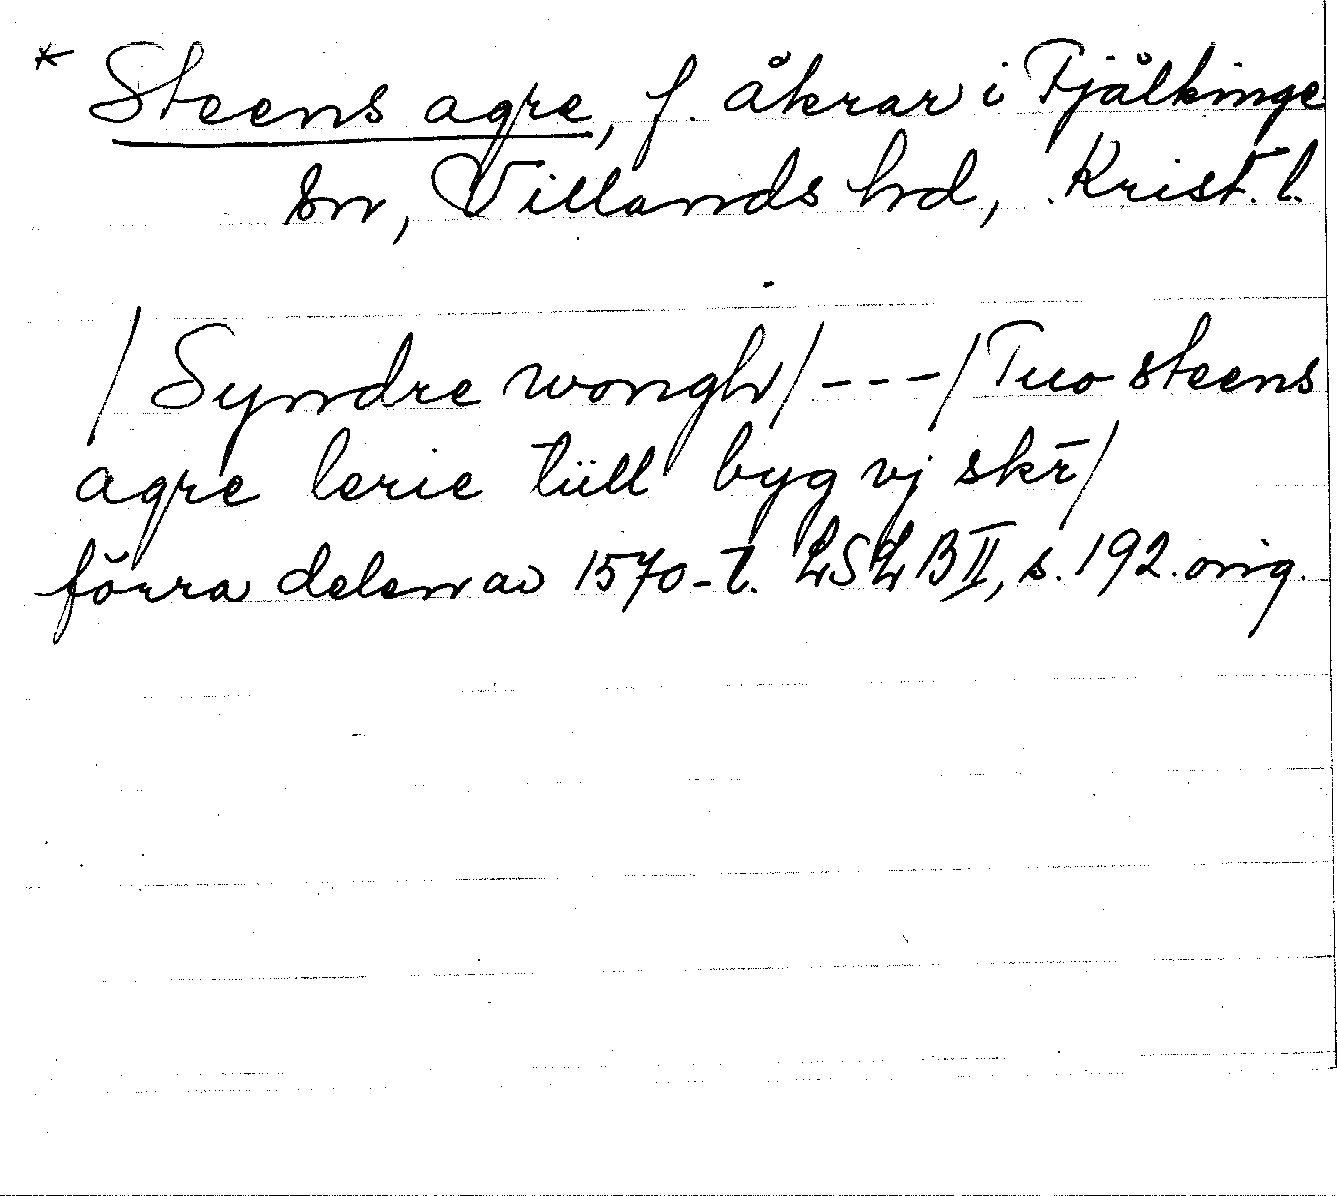 * Steens agre, f. åkrar i Fjälkinge
sn, Villands hd, Krist. l.
/ Syndre wongh / --- / Tuo steens
agre lerie tüll byg vj skr̄ /
förra delen av 1570-t. LSLB II, s. 192. orig.